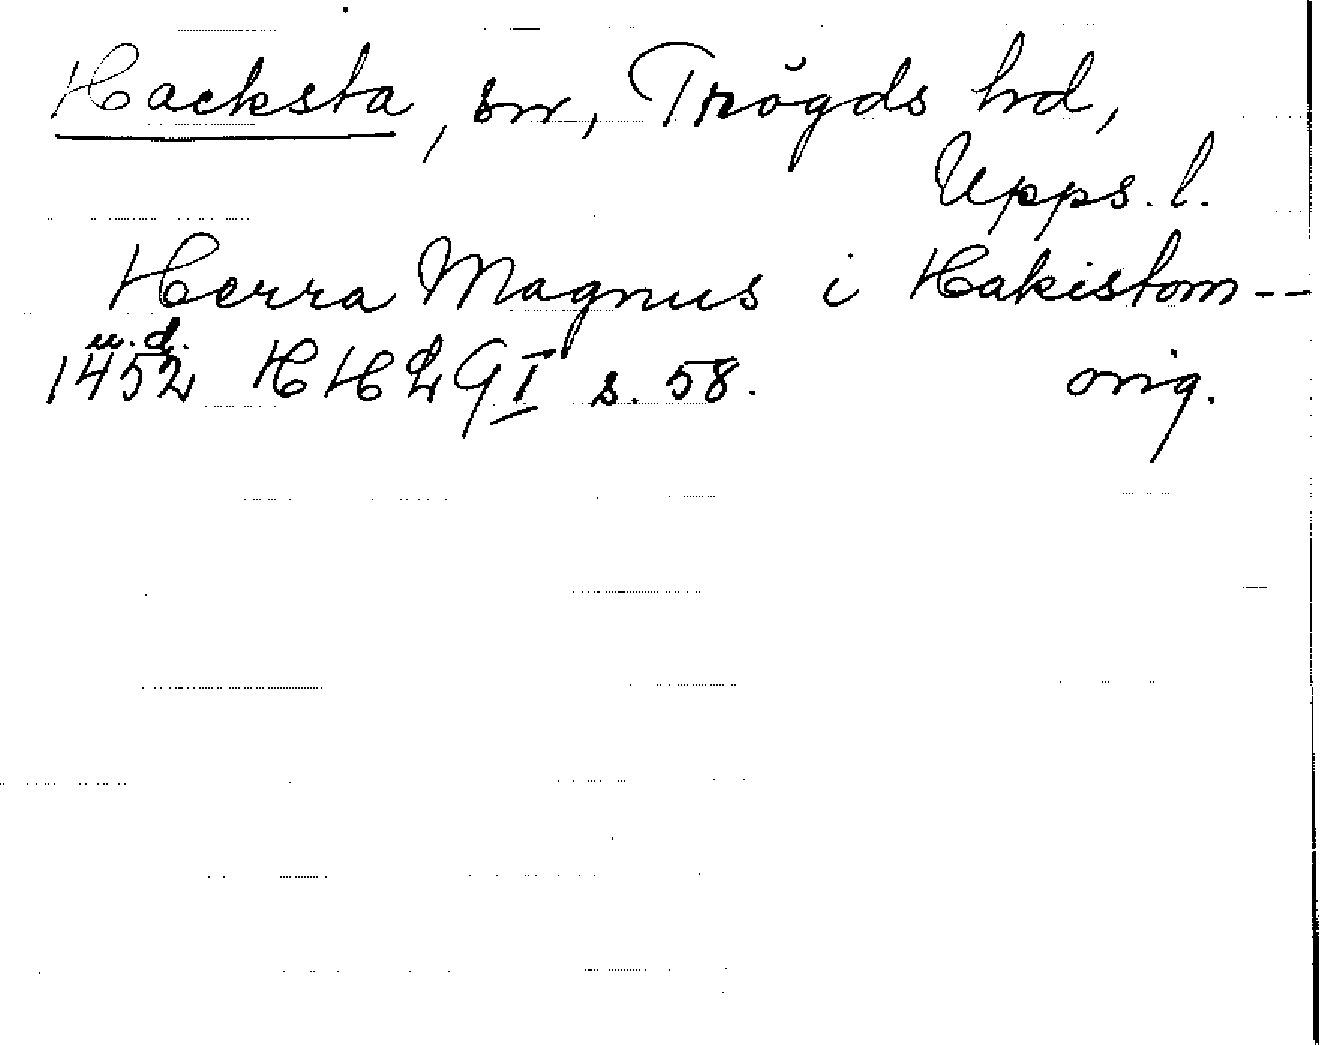 Hacksta, sn, Trögds hd,
Upps. l.
Herra Magnus i Hakistom --
u. d.
1452 HHLG I s. 58. orig.